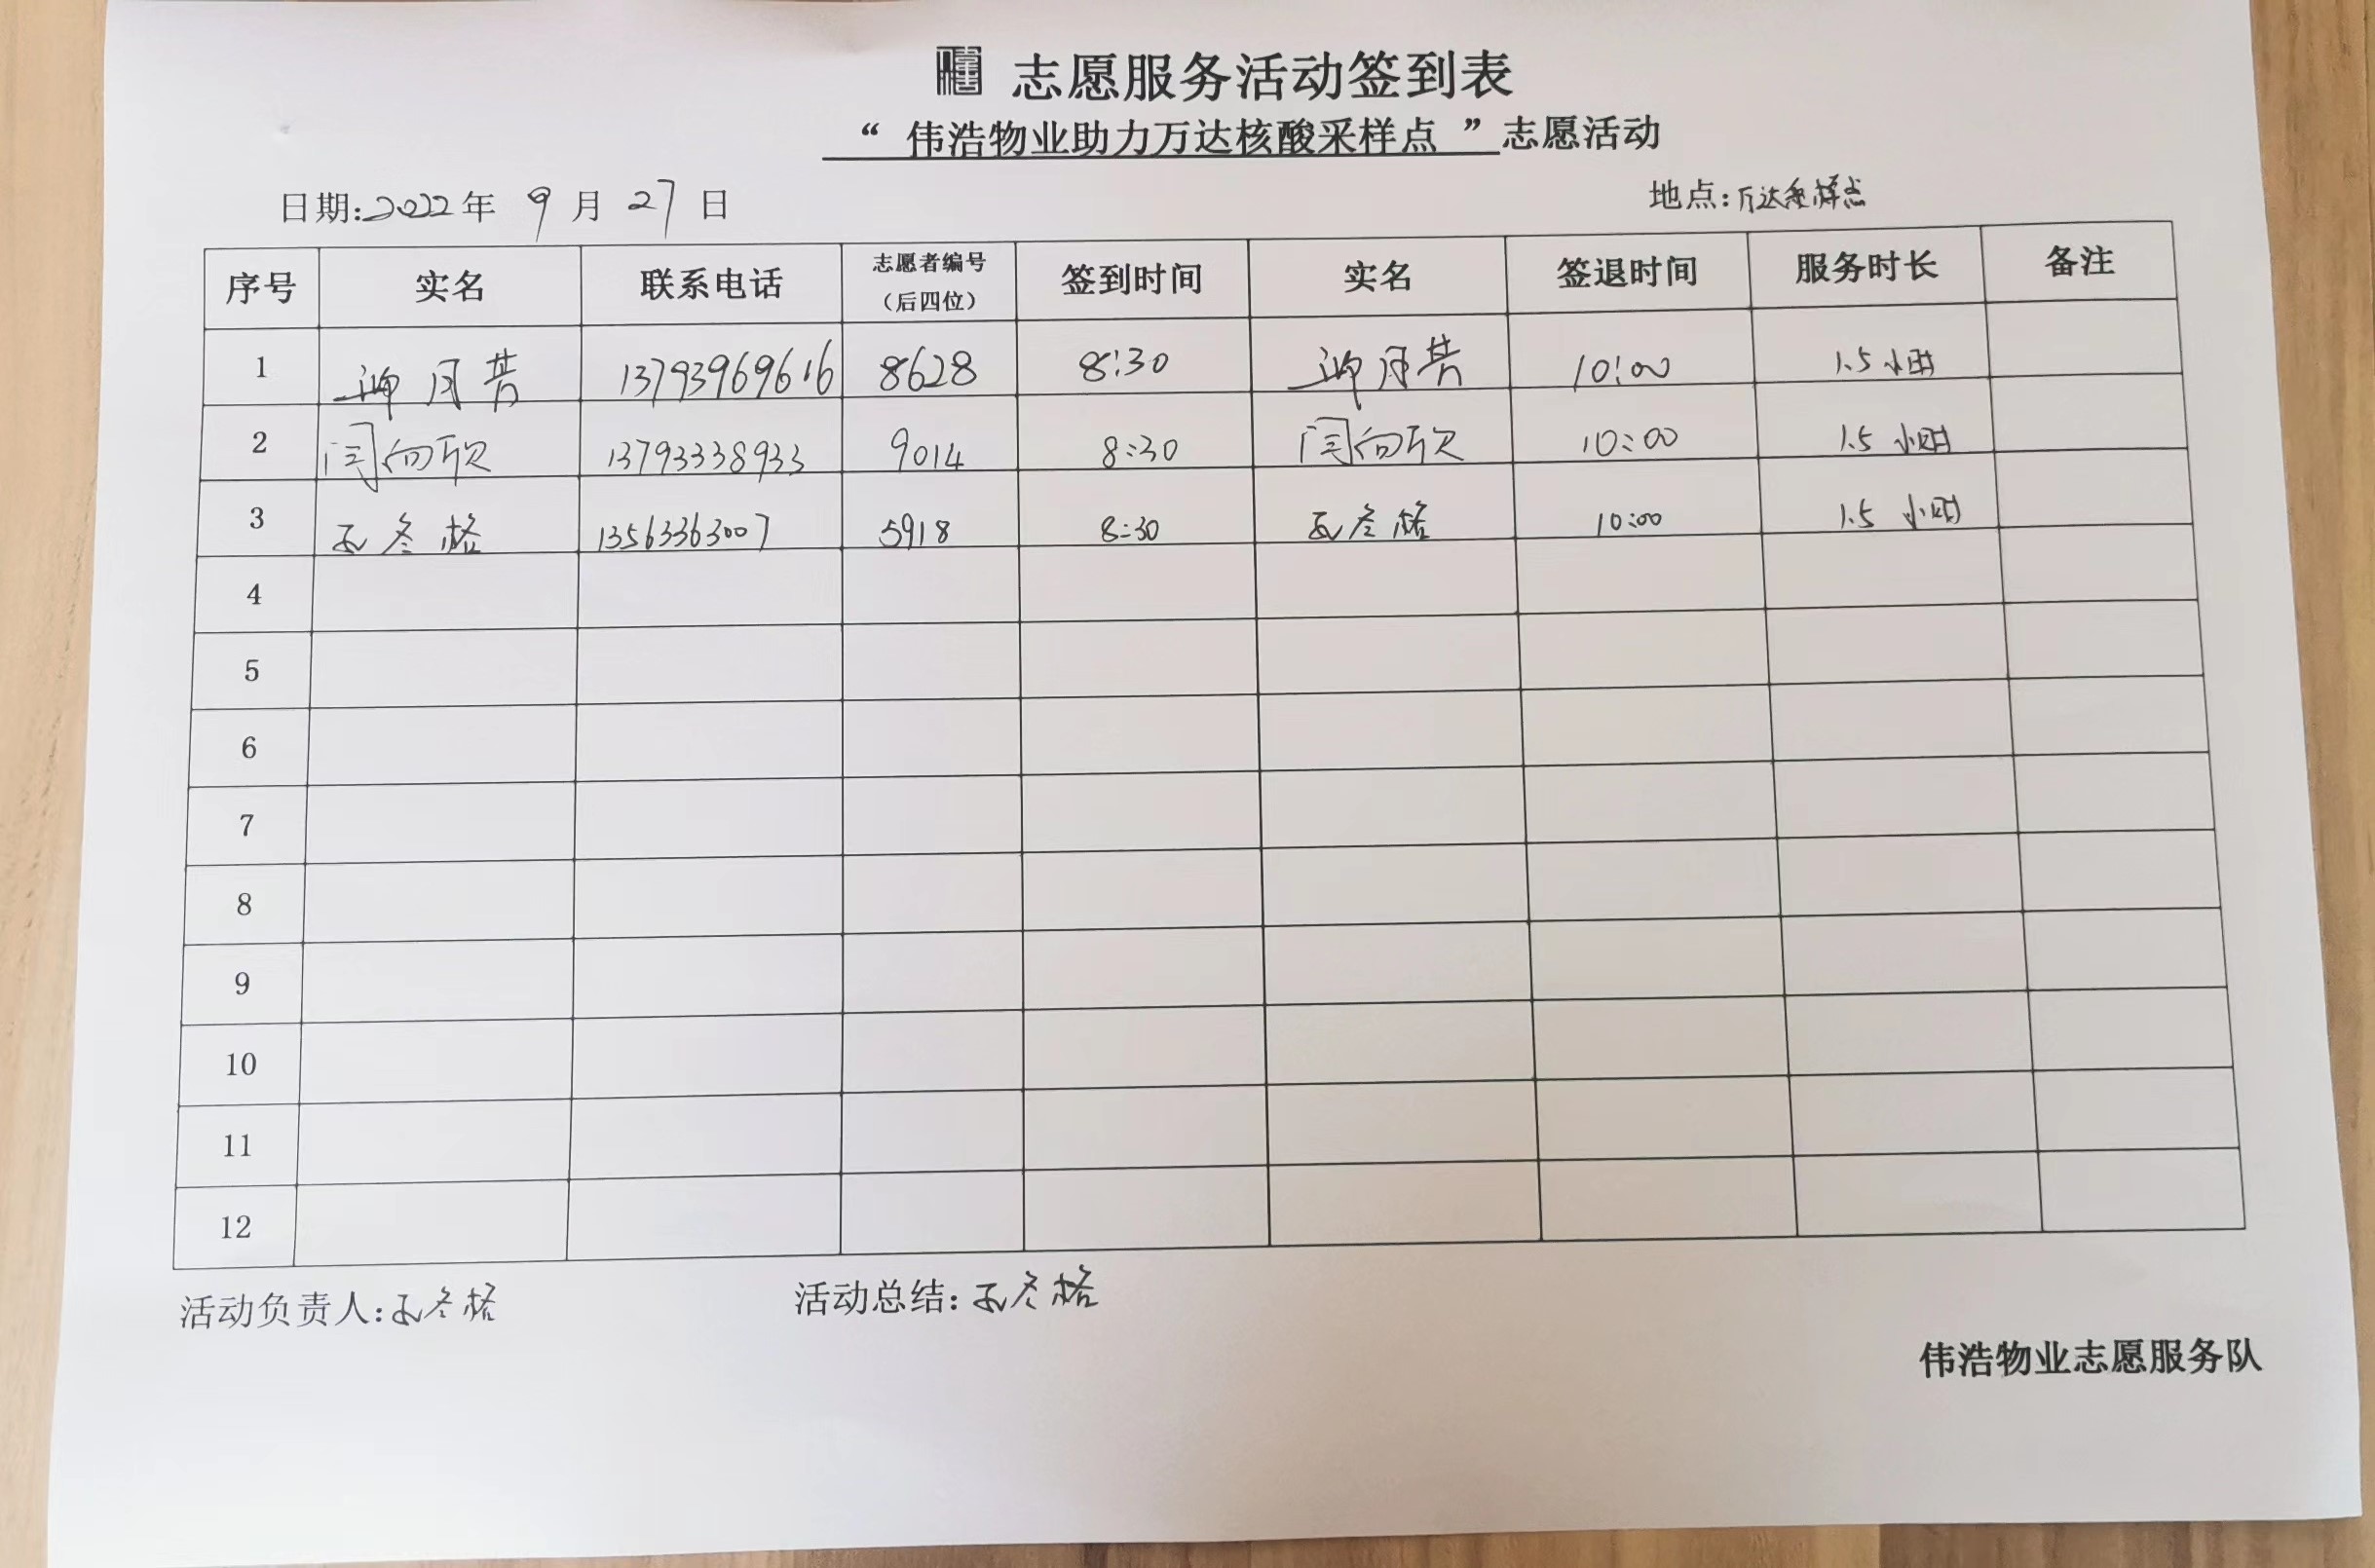 志愿服务活动签到表
“ 伟浩物业助力万达核酸采样点 ”志愿活动
日期:2022年 9月 27日 地点:万达采样点
序号 实名 联系电话 志愿者编号（后四位） 签到时间 实名 签退时间 服务时长 备注
1 月 13793969616 8628 8:30 月 10:00 1.5小时
2 闫向欣 13793338933 9014 8:30 闫向欣 10:00 1.5小时
3 冬格 13563363007 5918 8:30 冬格 10:00 1.5小时
4
5
6
7
8
9
10
11
12
活动负责人:冬格 活动总结:冬格
伟浩物业志愿服务队